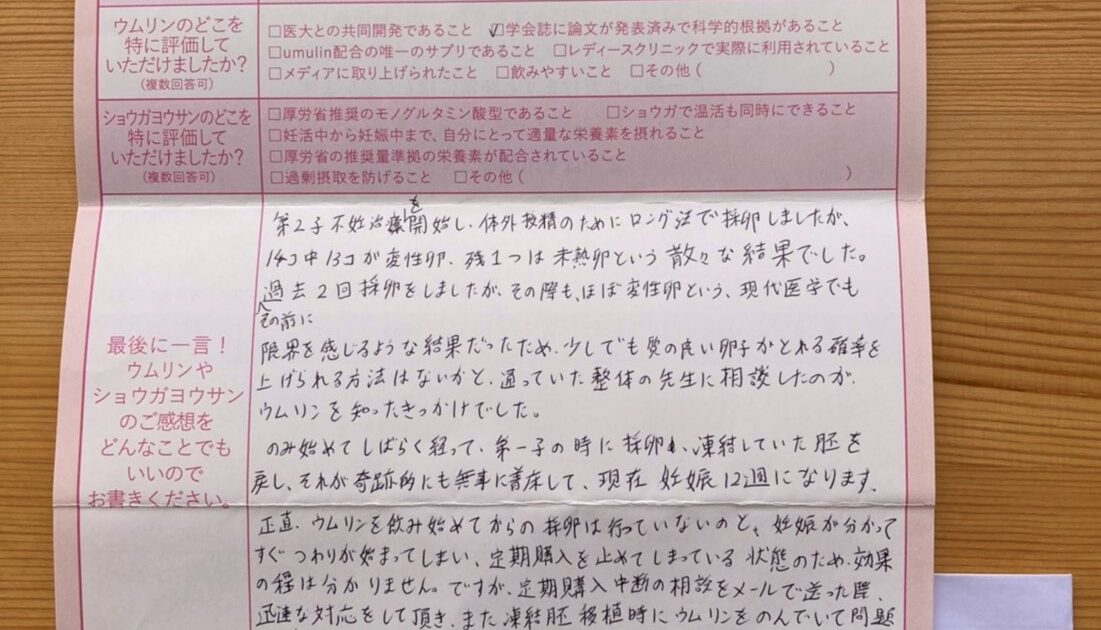 ウムリンのどこを
特に評価して
いただけましたか?
(複数回答可)
□医大との共同開発であること ☑学会誌に論文が発表済みで科学的根拠があること
□umulin配合の唯一のサプリであること □レディースクリニックで実際に利用されていること
□メディアに取り上げられたこと □飲みやすいこと □その他 ( )
ショウガヨウサンのどこを
特に評価して
いただけましたか?
(複数回答可)
□厚労省推奨のモノグルタミン酸型であること □ショウガで温活も同時にできること
□妊活中から妊娠中まで、自分にとって適量な栄養素を摂れること
□厚労省の推奨量準拠の栄養素が配合されていること
□過剰摂取を防げること □その他 ( )
最後に一言!
ウムリンや
ショウガヨウサン
のご感想を
どんなことでも
いいので
お書きください。
第2子不妊治療を開始し、体外授精のためにロング法で採卵しましたが、
14コ中13コが変性卵、残1つは未熟卵という散々な結果でした。
過去2回採卵をしましたが、その際も、ほぼ変性卵という、現代医学でも
その前に
限界を感じるような結果だったため、少しでも質の良い卵子がとれる確率を
上げられる方法はないかと、通っていた整体の先生に相談したのが、
ウムリンを知ったきっかけでした。
のみ始めてしばらく経って、第一子の時に採卵し、凍結していた胚を
戻し、それが奇跡的にも無事に着床して、現在 妊娠12週になります。
正直、ウムリンを飲み始めてからの採卵は行っていないのと、妊娠が分かって
すぐつわりが始まってしまい、定期購入を止めてしまっている状態のため、効果
の程は分かりません。ですが、定期購入中断の相談をメールで送った際、
迅速な対応をして頂き、また凍結胚移植時にウムリンをのんでいて問題